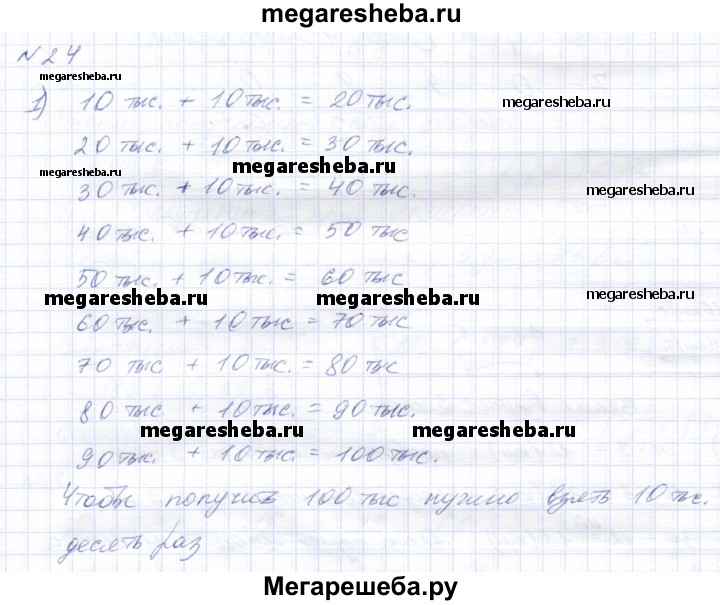 megaresheba.ru
№ 24
megaresheba.ru
1) 10 тыс. + 10 тыс. = 20 тыс.
megaresheba.ru
20 тыс. + 10 тыс. = 30 тыс.
megaresheba.ru
megaresheba.ru
30 тыс. + 10 тыс. = 40 тыс.
megaresheba.ru
40 тыс. + 10 тыс. = 50 тыс
50 тыс. + 10 тыс. = 60 тыс
megaresheba.ru megaresheba.ru megaresheba.ru
60 тыс. + 10 тыс = 70 тыс
70 тыс + 10 тыс. = 80 тыс
80 тыс + 10 тыс. = 90 тыс.
megaresheba.ru megaresheba.ru
90 тыс. + 10 тыс. = 100 тыс.
Чтобы получить 100 тыс нужно взять 10 тыс.
десять раз
Мегарешеба.ру